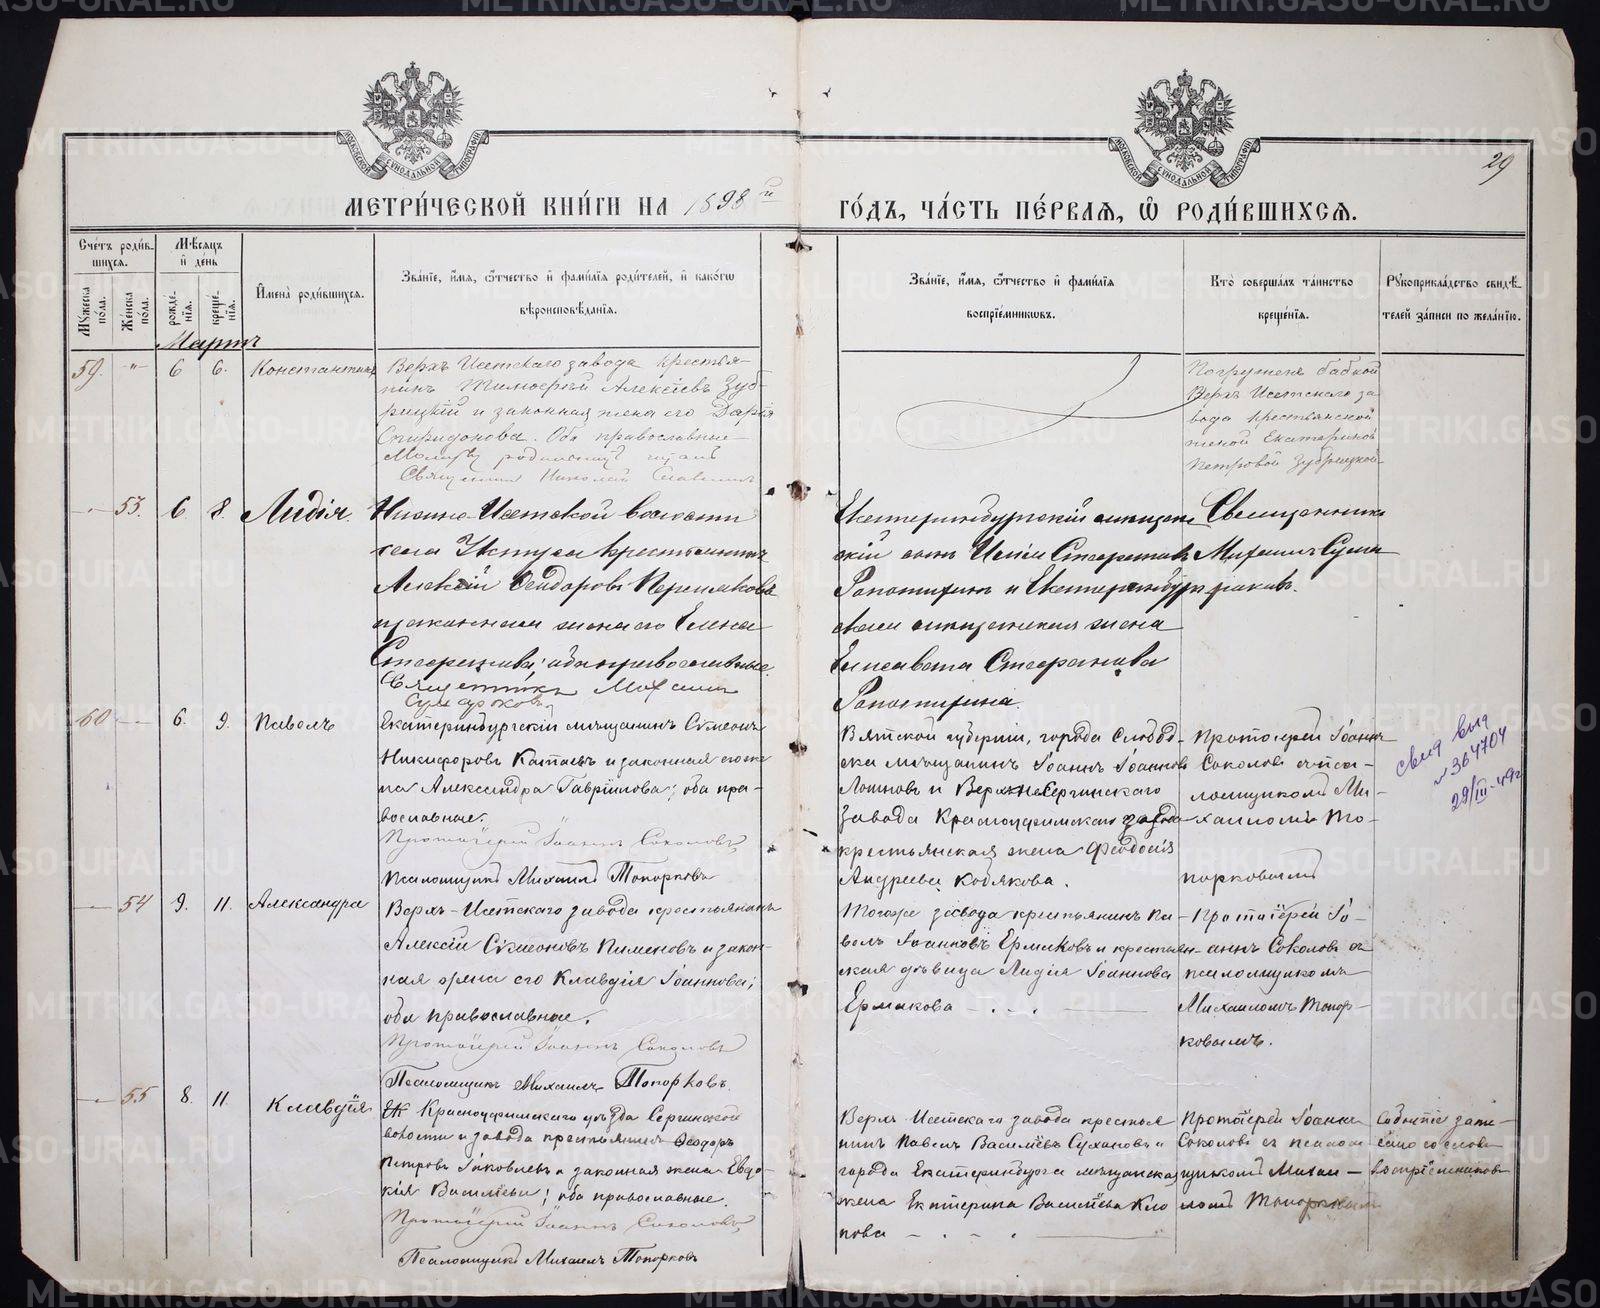 29
МЕТРИ́ЧЕСКОЙ КНИ́ГИ НА 1898 й
ГО́ДЪ, ЧА́СТЬ ПЕ́РВАЯ, Ѡ РОДИ́ВШИХСЯ.
Сче́тъ роди́в-
шихся.
Мужеска пола.
Же́нска пола.
Мѣсяцъ
и́ де́нь
рожде́-
нія.
креще́-
нія.
И́мена̀ роди́вшихся.
Зва́ніе, и́мя, ѻ́тчество и́ фами́лія роди́телей, и́ како́гѡ
вѣроисповѣ́данія.
Зва́ніе, и́мя, ѻ́тчество и́ фами́лія
воспріе́мниковъ.
Кто̀ соверша́лъ та́инство
креще́нія.
Рꙋкоприкла́дство свидѣ́-
телей за́писи по жела́нію.
Мартъ
59. " 6 6. Константинъ
Верхъ Исетскаго завода крестья-
нинъ Тимофей Алексѣевъ Зуб-
рицкій и законная жена его Дарія
Спиридонова. Оба православные
Молитву родильницѣ читалъ
Священникъ Николай
Погруженъ бабкой
Верхъ Исетскаго за
вода крестьянской
женой Екатериной
Петровой Зубрицкой
53. 6 8. Лидія.
Нижне-Исетской волости
села Уктуса крестьянинъ
Алексій Ѳеодоровъ
и законная жена его Елена
Стефанова; оба православные.
Священникъ Михаилъ
Екатеринбургскій мѣщан
скій сынъ Стефановъ
и Екатеринбург
ская мѣщанская жена
Елисавета Стефанова
Священникъ
Михаилъ Сума
роковъ.
60 6. 9. Павелъ
Екатеринбургскій мѣщанинъ Сѵмеонъ
Никифоровъ Катаевъ и законная его же
на Александра Гавріилова; оба пра-
вославные.
Протоіерей Іоаннъ Соколовъ
Псаломщикъ Михаилъ Топорковъ
Вятской губерніи, города Слобод-
ска мѣщанинъ Іоаннъ Іоанновъ
и Верхнесергинскаго
завода Красноуфимскаго уѣзда
крестьянская жена Ѳеодосія
Андреева Кобякова.
Протоіерей Іоаннъ
Соколовъ съ пса-
ломщикомъ Ми-
хаиломъ То-
порковымъ
свид выд
№ 364704
29/III-49г
54 9. 11. Александра
Верхъ-Исетскаго завода крестьянинъ
Алексій Сѵмеоновъ Пименовъ и закон-
ная жена его Клавдія Іоаннова;
оба православные.
Протоіерей Іоаннъ Соколовъ
Псаломщикъ Михаилъ Топорковъ.
Тогоже завода крестьянинъ Па-
велъ Іоанновъ Ермаковъ и крестьян-
ская дѣвица Лидія Іоаннова
Ермакова
Протоіерей Іо-
аннъ Соколовъ съ
псаломщикомъ
Михаиломъ Топор-
ковымъ.
55 8. 11. Клавдія
Красноуфимскаго уѣзда Сергинской
волости и завода крестьянинъ Ѳеодоръ
Петровъ Яковлевъ и законная жена Евдо-
кія Васильева; оба православные.
Протоіерей Іоаннъ Соколовъ
Псаломщикъ Михаилъ Топорковъ
Верхъ Исетскаго завода крестья
нинъ Павелъ Васильевъ Сухановъ и
города Екатеринбурга мѣщанская
жена Екатерина Васильева Кло
пова
Протоіерей Іоаннъ
Соколовъ съ псалом
щикомъ Михаи-
ломъ Топорковымъ
Событіе запи-
сано со словъ
воспріемниковъ
METRIKI.GASO-URAL.RU